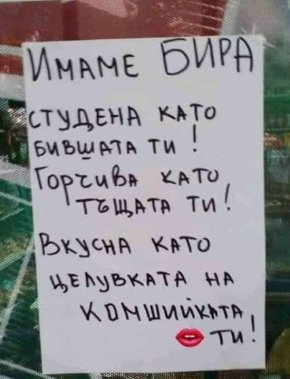 ИМАМЕ БИРА
СТУДЕНА КАТО
БИВШАТА ТИ !
ГОРЧИВА КАТО
ТЪЩАТА ТИ !
ВКУСНА КАТО
ЦЕЛУВКАТА НА
КОМШИЙКАТА
ТИ !